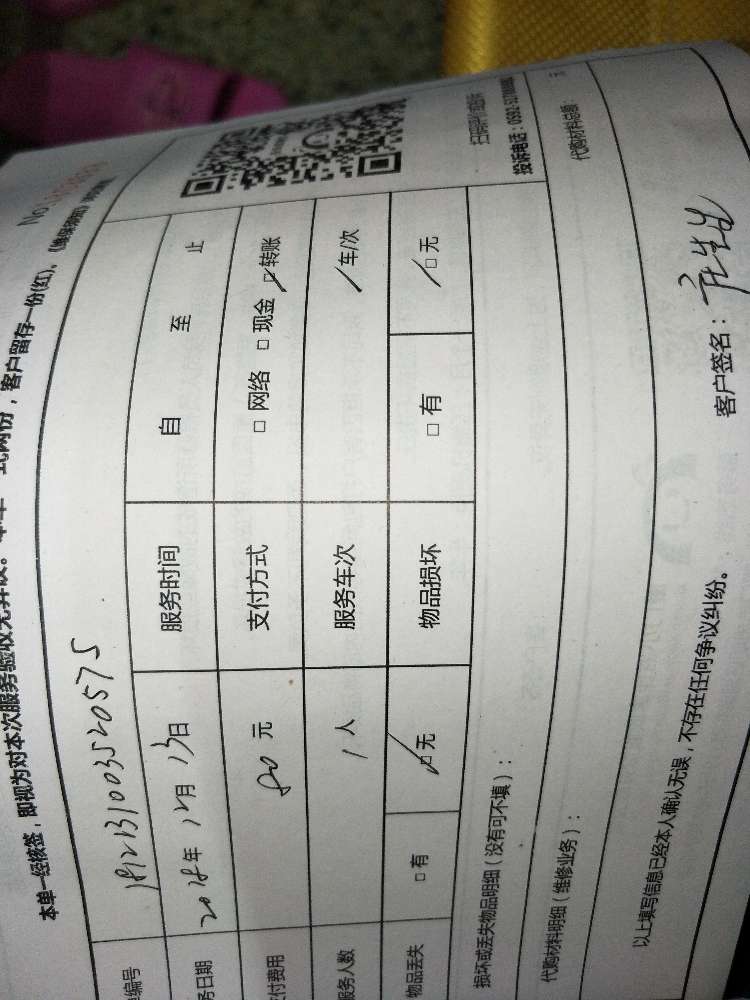 No
本单一经核签，即视为对本次服务验收无异议。本单一式两份，客户留存一份(红)、
编号 1812131003520575
务日期 2018年 12月 13日 服务时间 自 至 止
付费用 80 元 支付方式 □ 网络 □ 现金 ☑ 转账
服务人数 1 人 服务车次 1 车/次
物品丢失 □ 有 ☑ 无 物品损坏 □ 有 ☑ 无
损坏或丢失物品明细（没有可不填）：
投诉电话：0592-
代购材料明细（维修业务）： 代购材料总额： 元
以上填写信息已经本人确认无误，不存在任何争议纠纷。
客户签名：